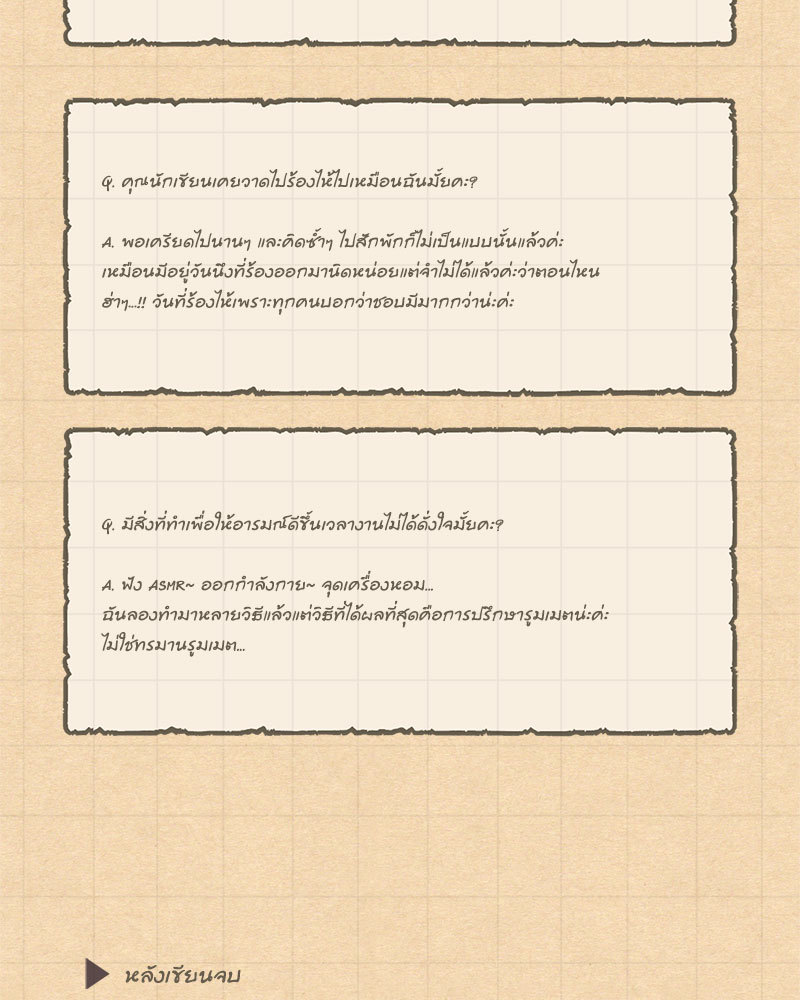 Q. คุณนักเขียนเคยวาดไปร้องไห้ไปเหมือนฉันมั้ยคะ?
A. พอเครียดไปนานๆ และคิดซ้ำๆ ไปสักพักก็ไม่เป็นแบบนั้นแล้วค่ะ
เหมือนมีอยู่วันนึงที่ร้องออกมานิดหน่อยแต่จำไม่ได้แล้วค่ะว่าตอนไหน
ฮ่าๆ...!! วันที่ร้องไห้เพราะทุกคนบอกว่าชอบมีมากกว่าน่ะค่ะ
Q. มีสิ่งที่ทำเพื่อให้อารมณ์ดีขึ้นเวลางานไม่ได้ดั่งใจมั้ยคะ?
A. ฟัง ASMR~ ออกกำลังกาย~ จุดเครื่องหอม...
ฉันลองทำมาหลายวิธีแล้วแต่วิธีที่ได้ผลที่สุดคือการปรึกษารูมเมตน่ะค่ะ
ไม่ใช่ทรมานรูมเมต...
หลังเขียนจบ